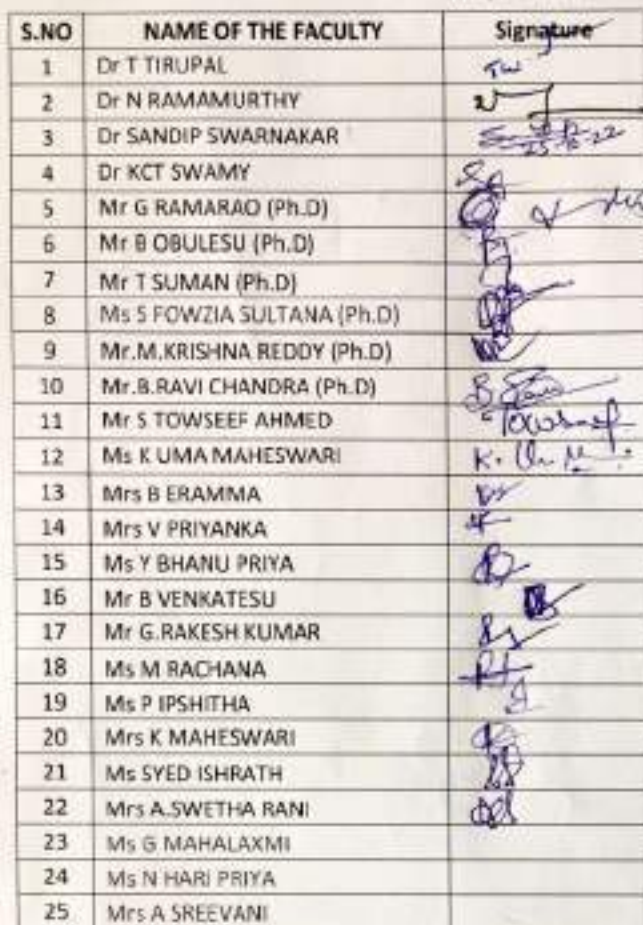 S.NO NAME OF THE FACULTY Signature
1 Dr T TIRUPAL
2 Dr N RAMAMURTHY
3 Dr SANDIP SWARNAKAR
4 Dr KCT SWAMY
5 Mr G RAMARAO (Ph.D)
6 Mr B OBULESU (Ph.D)
7 Mr T SUMAN (Ph.D)
8 Ms S FOWZIA SULTANA (Ph.D)
9 Mr.M.KRISHNA REDDY (Ph.D)
10 Mr.B.RAVI CHANDRA (Ph.D)
11 Mr S TOWSEEF AHMED
12 Ms K UMA MAHESWARI
13 Mrs B ERAMMA
14 Mrs V PRIYANKA
15 Ms Y BHANU PRIYA
16 Mr B VENKATESU
17 Mr G.RAKESH KUMAR
18 Ms M RACHANA
19 Ms P IPSHITHA
20 Mrs K MAHESWARI
21 Ms SYED ISHRATH
22 Mrs A.SWETHA RANI
23 Ms G MAHALAXMI
24 Ms N HARI PRIYA
25 Mrs A SREEVANI